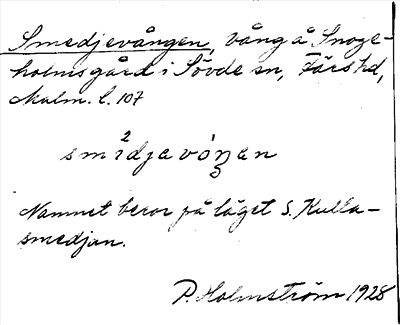 Smedjevången, vång å Snoge-
holmsgård i Sövde sn, Färs hd,
Malm. l. 107
smidjavóŋan
2
Namnet beror på läget S. Kulla-
smedjan.
P. Holmström 1928